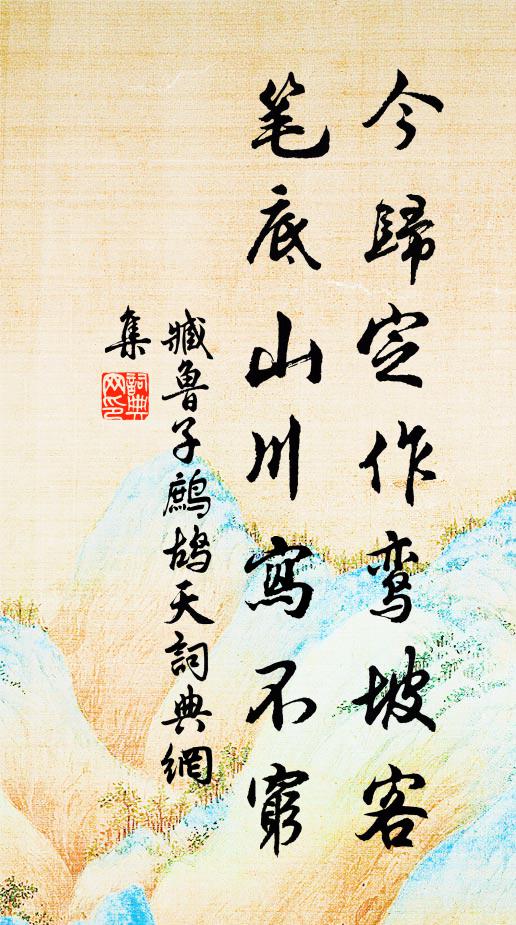 今歸定作鸾坡客
笔底山川寫不窮
臧魯子鷓鴣天詞典網
集
詞典
网印